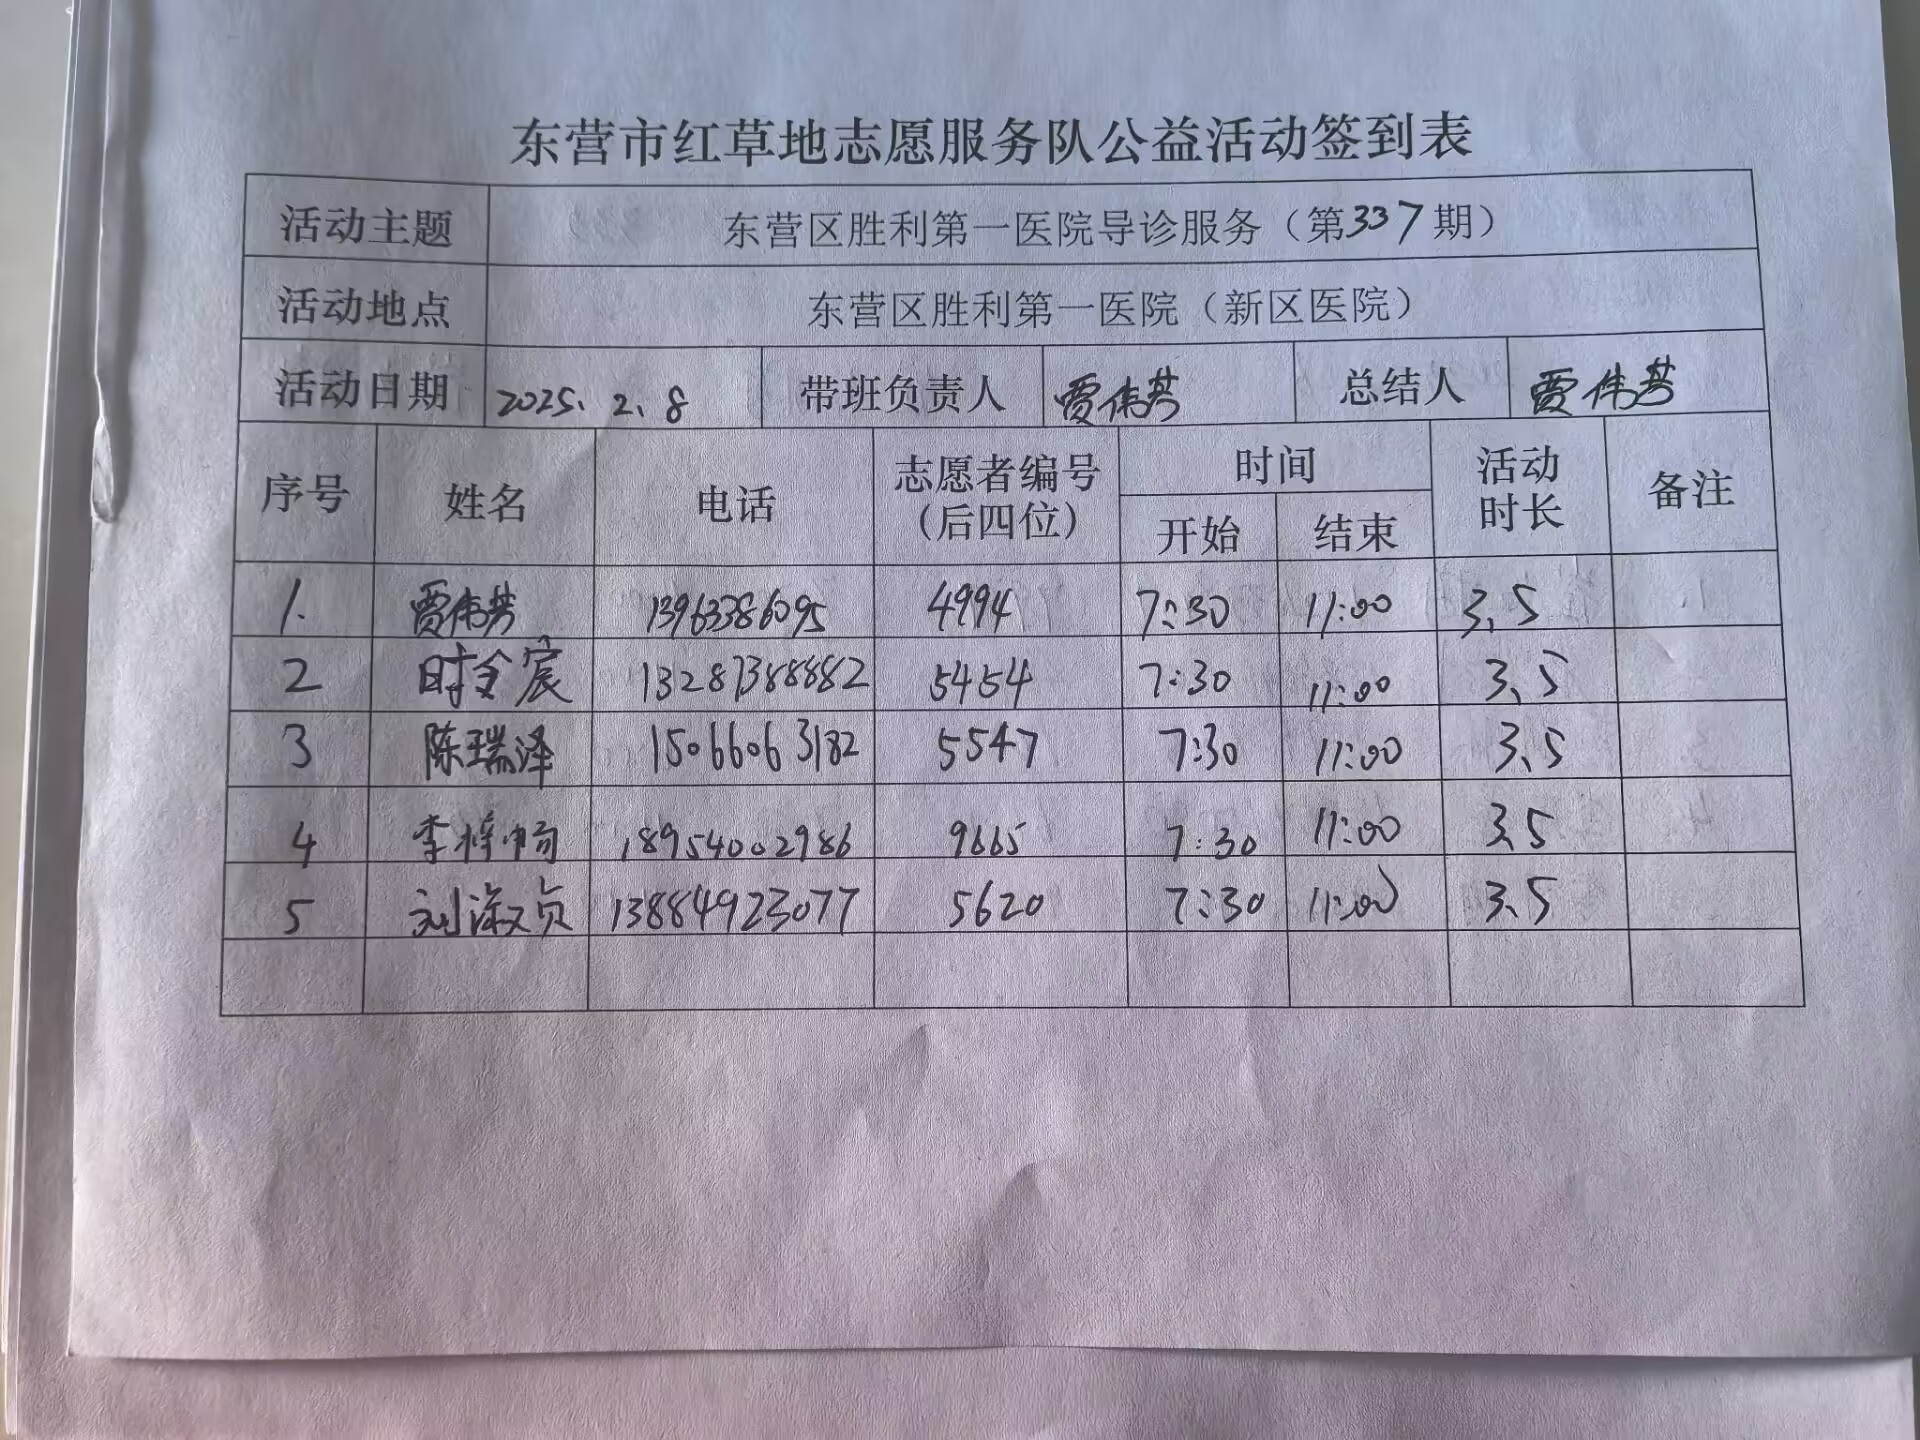 东营市红草地志愿服务队公益活动签到表
活动主题 东营区胜利第一医院导诊服务（第337期）
活动地点 东营区胜利第一医院（新区医院）
活动日期 2025、2、8 带班负责人 贾伟芳 总结人 贾伟芳
序号 姓名 电话 志愿者编号（后四位） 时间 开始 结束 活动时长 备注
1. 贾伟芳 13963386095 4994 7:30 11:00 3、5
2 时全宸 13287388882 5454 7:30 11:00 3、5
3 陈瑞泽 15066063182 5547 7:30 11:00 3、5
4 李梓 18954002986 9665 7:30 11:00 3.5
5 刘淑贞 13884923077 5620 7:30 11:00 3、5